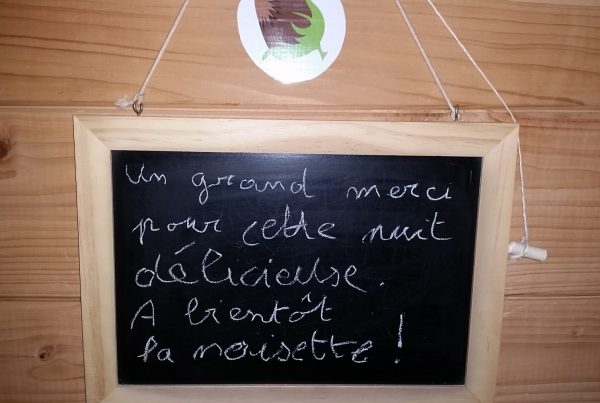 Un grand merci
pour cette nuit
délicieuse.
A bientôt
la noisette !